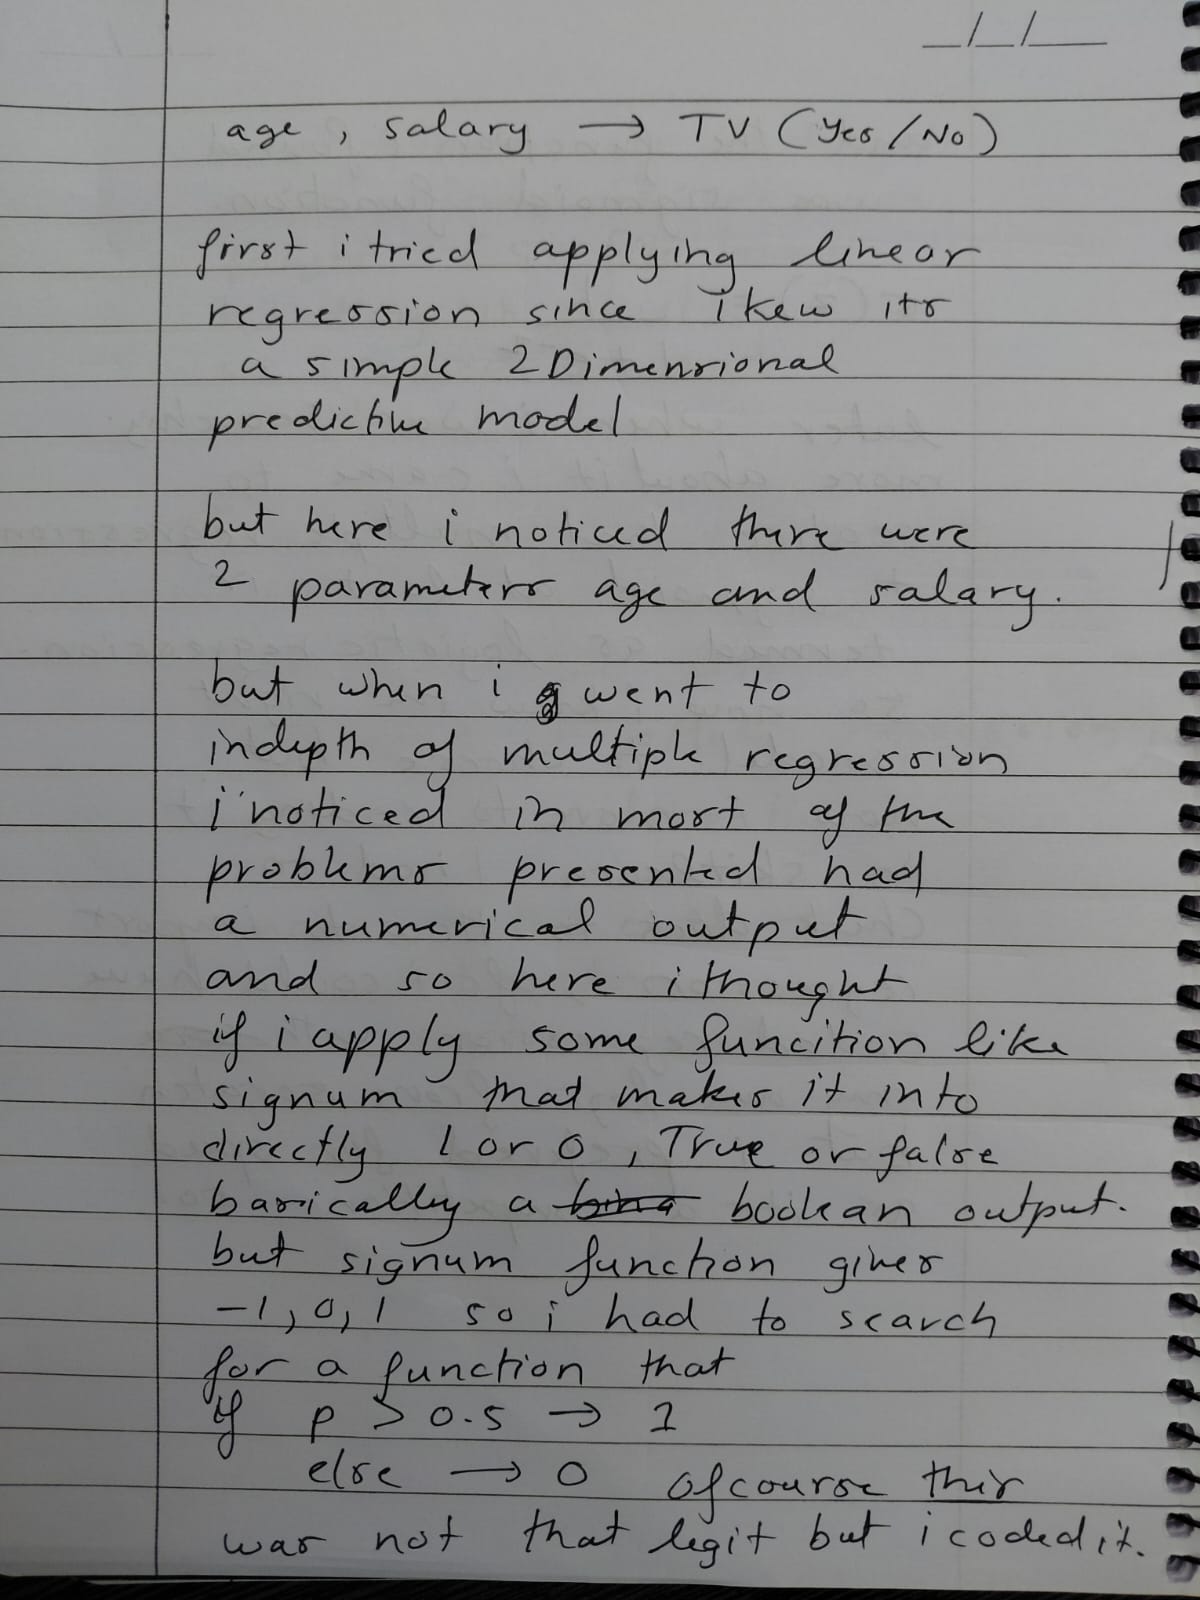 _/_/___
age , salary → TV (Yes/No)
first i tried applying linear
regression since i kew its
a simple 2Dimensional
predictive model
but here i noticed there were
2 parameters age and salary.
but when i went to
indepth of multiple regression
i noticed in most of the
problems presented had
a numerical output
and so here i thought
if i apply some funcition like
signum that makes it into
directly 1 or 0 , True or false
basically a boolean output.
but signum function gives
-1, 0, 1 so i had to search
for a function that
if p > 0.5 → 1
else → 0 ofcourse this
was not that legit but i coded it.